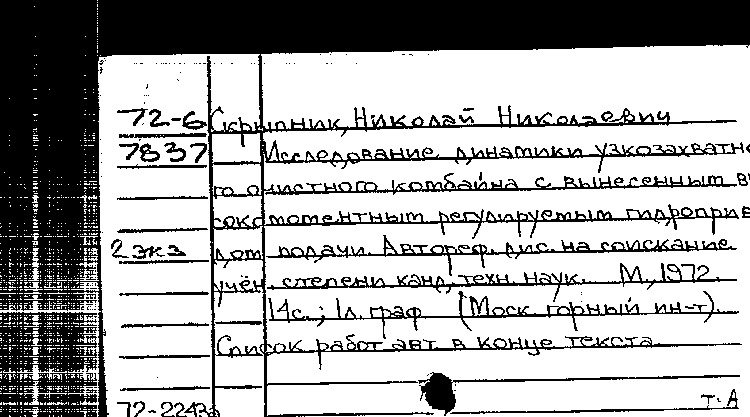 72-6 Скрыпник, Николай Николаевич
7837 Исследование динамики узкозахватно
го очистного комбайна с вынесенным вы
сокомоментным регулируемым гидроприв
2 экз дом подачи. Автореф. дис. на соискание
учён. степени канд. техн. наук. М., 1972.
14с.; 1л. граф (Моск. горный ин-т).
Список работ авт. в конце текста
72-2243а т.А